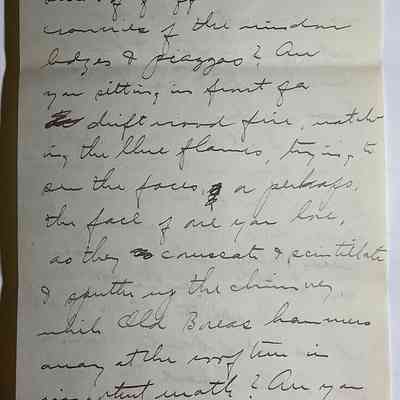 crannies of the window
ledges & piazzas? Are
you sitting in front of a
driftwood fire, watch
ing the blue flames, trying to
see the faces, or perhaps,
the face of one you love,
as they coruscate & scintillate
& sputter up the chimney
while Old Boreas hammers
away at the roof tree in
impotent wrath? Are you